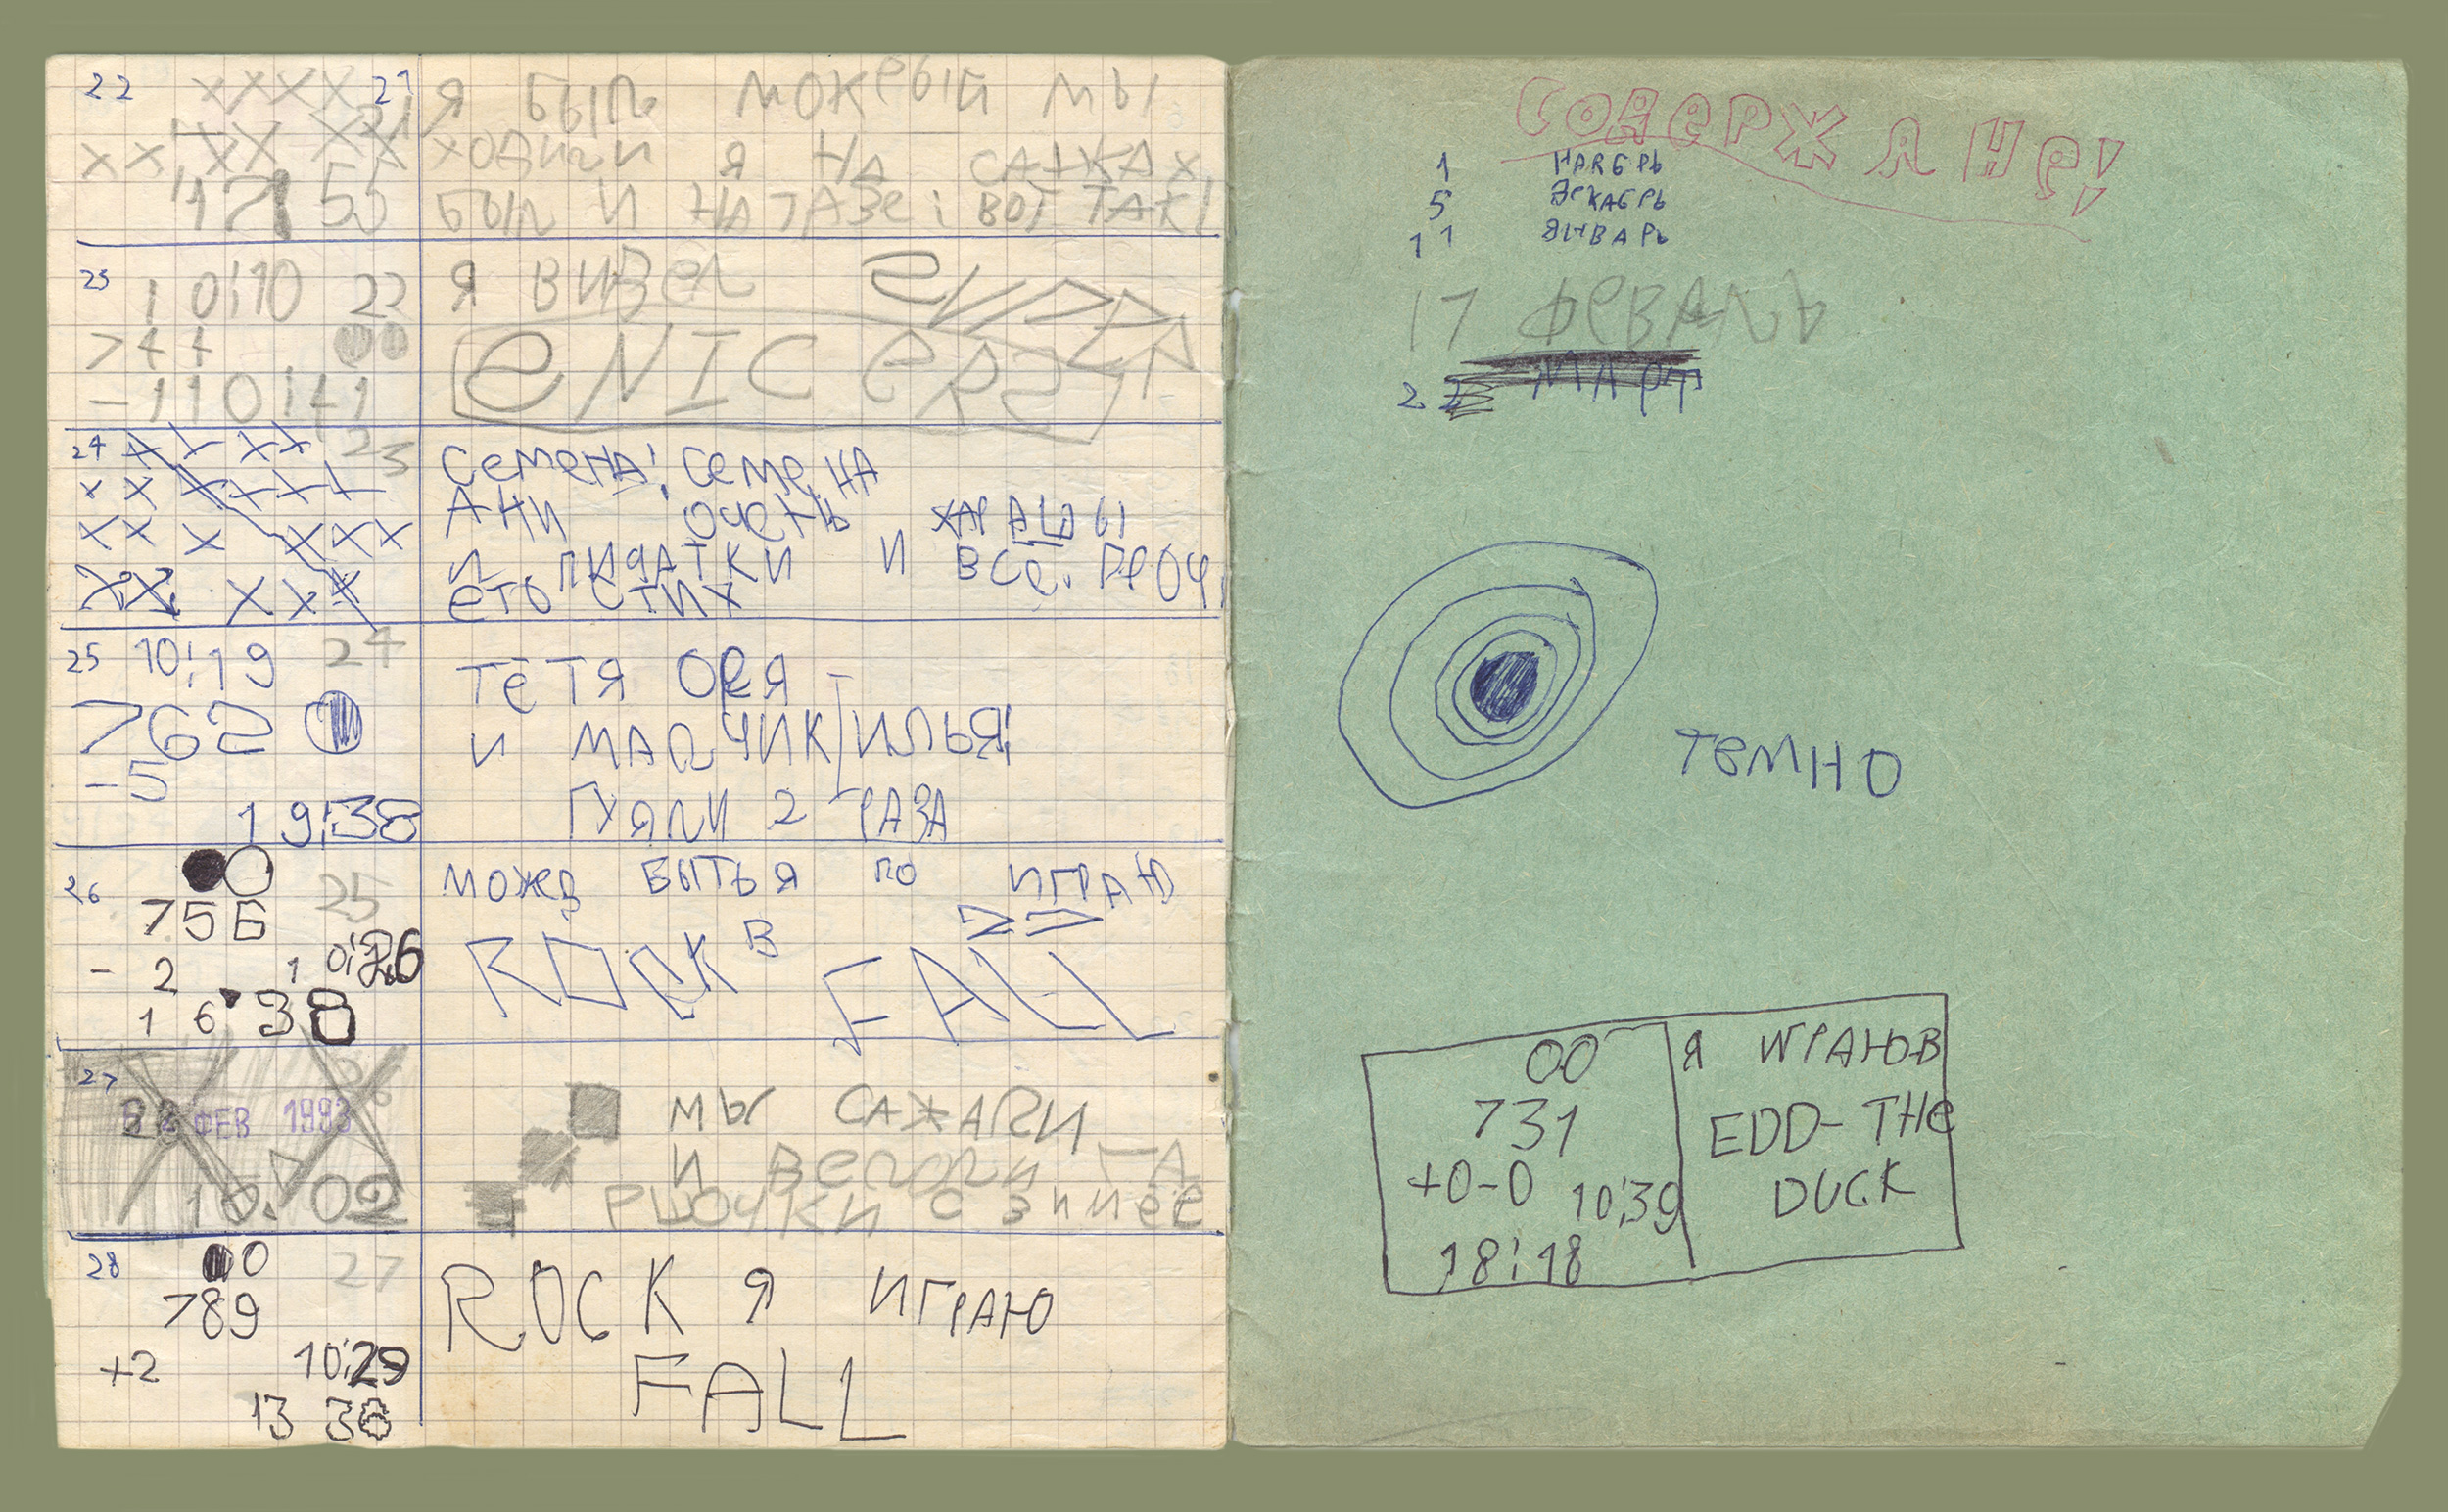 22 XXXX 21
XX XX XX
12 55
Я БЫЛ МОКРЫЙ МЫ
ХОДИЛИ Я НА САНКАХ
БЫЛ И НА ТАЗЕ: ВОТ ТАК!
23 10:10 22
744
-110
Я ВИДЕЛ
ENICERS
24 23
СЕМЕНА! СЕМЕНА
АНИ ОЧЕНЬ ХАРАШЫ
И ПИДАТКИ И ВСЕ. ПРОЧ,
ЕТО СТИХ
25 10:19 24
762
-5
19:38
ТЁТЯ ОЛЯ
И МАЛЧИК ИЛЬЯ!
ГУЯЛИ 2 РАЗА
26 25
756
-2 10:26
16 38
МОЖЕД БЫТЬ Я ПО ИГРАЮ
В
ROCK FALL
27 26
22 ФЕВ 1993
10. 02
МЫ САЖАЛИ
И
РШОЧКИ С ЗИМЕЕ
28 00 27
789
+2 10:29
13 38
ROCK Я ИГРАЮ
FALL
СОДЕРЖАНЕ!
1 НАЯБРЬ
5 ДЕКАБРЬ
11 ЯНВАРЬ
17 ФЕВАЛЬ
22 МАРТ
ТЕМНО
00
731
+0-0 10:39
18:18
Я ИГРАЮВ
EDD-THE
DUCK